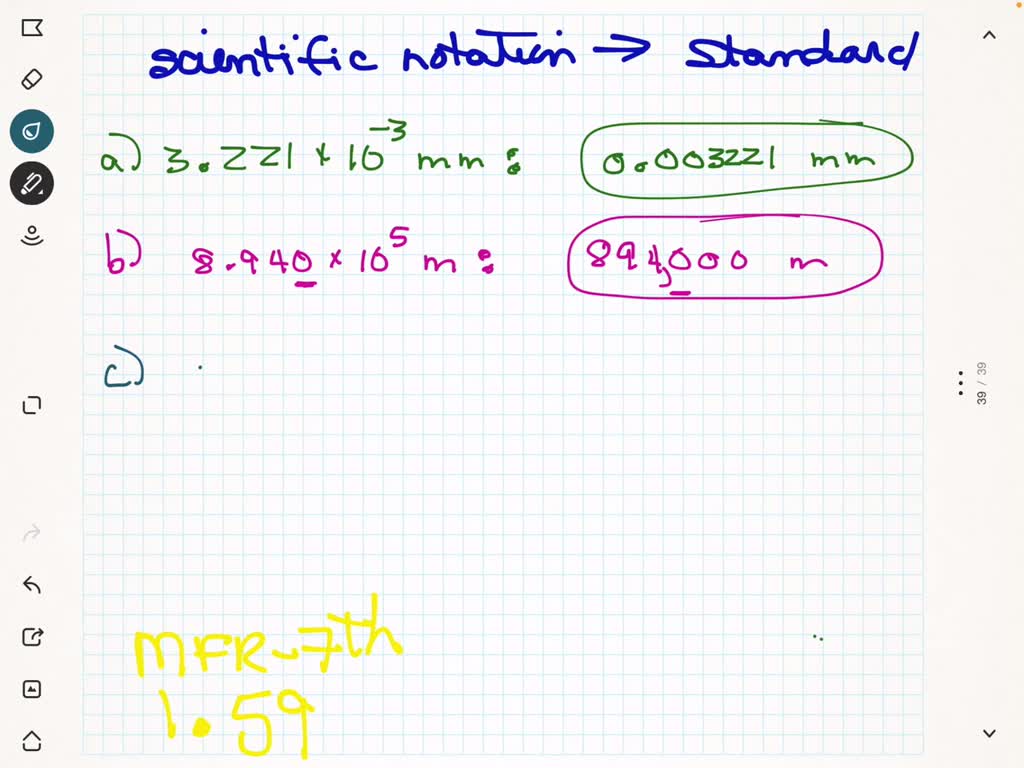 scientific notation → standard
a) 3.221 × 10⁻³ mm : 0.003221 mm
b) 8.940 × 10⁵ m : 894,000 m
c) .
39 / 39
MFR-7th
1.59